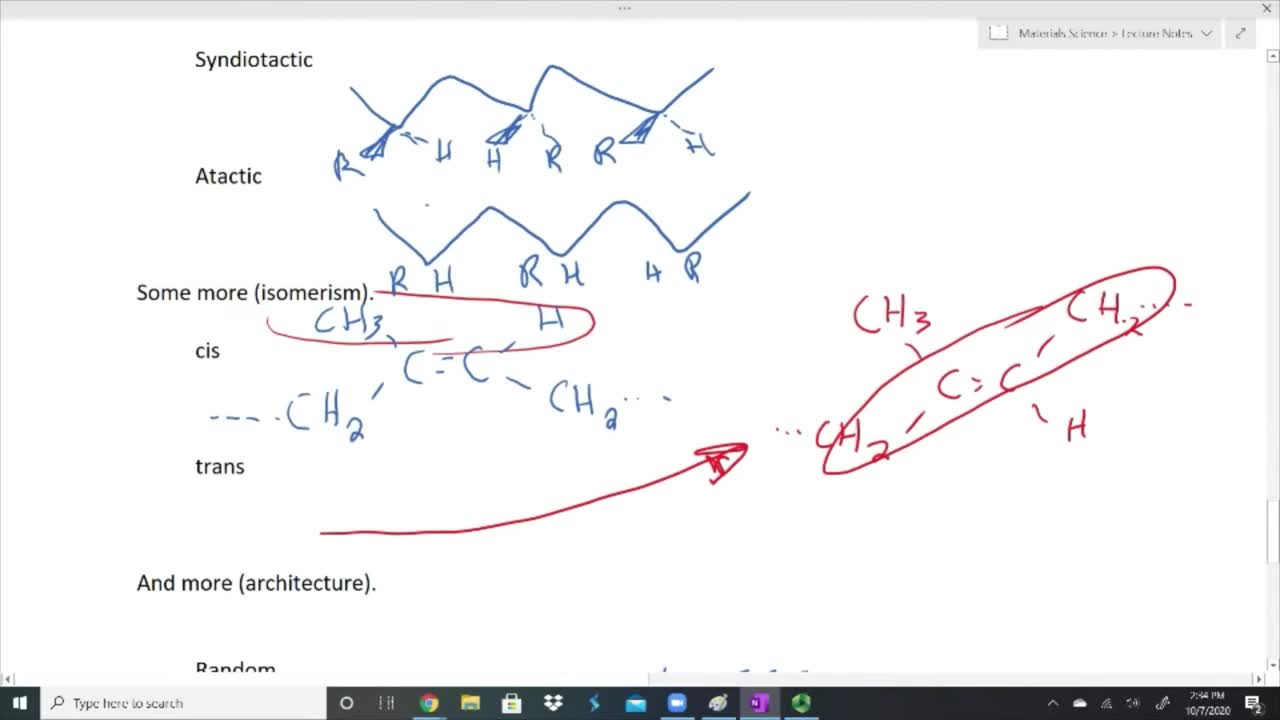 Materials Science > Lecture Notes
Syndiotactic
R H H R R H
Atactic
R H R H H R
Some more (isomerism).
CH3 H
cis
C=C
----CH2 CH2...
CH3 CH2...
C=C
...CH2 H
trans
And more (architecture).
Random
Type here to search
2:34 PM
10/7/2020
2